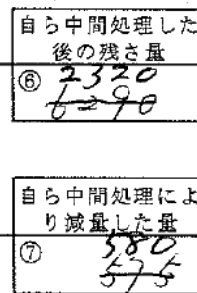 自ら中間処理した
後の残さ量
⑥ 2320
自ら中間処理によ
り減量した量
⑦ 580
575